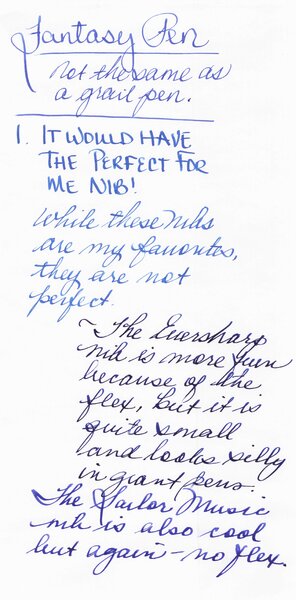 Fantasy Pen
not the same as
a grail pen.
1. IT WOULD HAVE
THE PERFECT FOR
ME NIB!
While these nibs
are my favorites,
they are not
perfect.
~The Eversharp
nib is more fun
because of the
flex, but it is
quite small
and looks silly
in giant pens.
The Sailor Music
nib is also cool
but again - no flex.